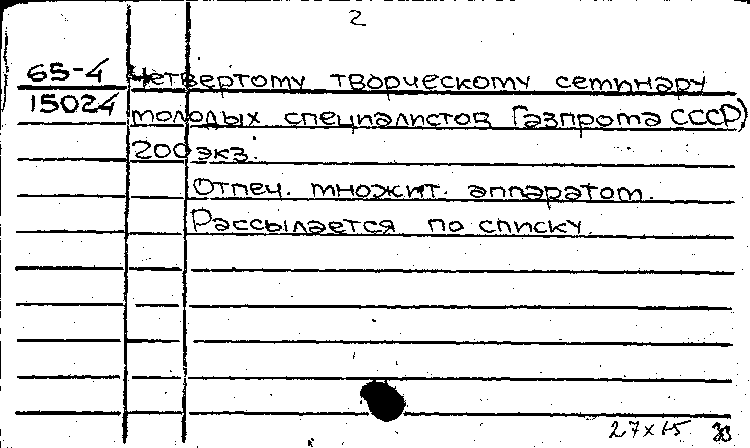 2
65-4 Четвертому творческому семинару
15024 молодых специалистов Газпрома СССР)
200 экз.
Отпеч. множит. аппаратом.
Рассылается по списку.
27×15